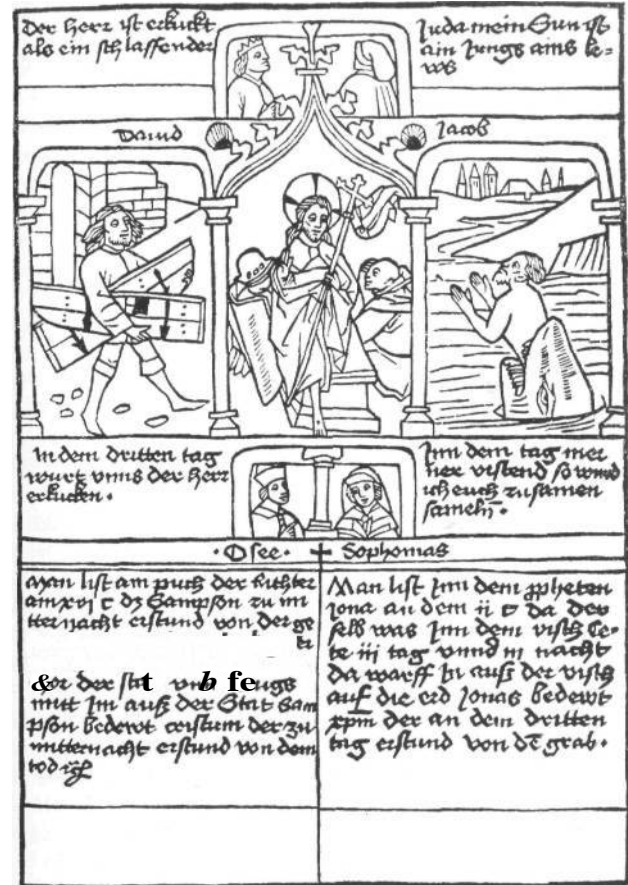 Der herr ist erkuckt
als ein schlaffender
Juda mein Sun ist
ain Jungs ains le-
ws
Dauid
Jacob
In dem dritten tag
wurt vnns der herr
erkucken.
Inn dem tag mei
ner vrstend so wurd
ich euch zu samen
sameln.
Osee.
Sophonias
Man list am puch der Richter
am xvj c dz Sampson zu mi
tternacht erstund von der ge
der
mitt Im auß der Stat Sam
pson bedewt cristum der zu
mitternacht erstund von dem
tod
Man list Inn dem ppheten
Jona an dem ii c da der
selb was Inn dem visch Ce-
te iii tag vnnd iii nacht
da warff In auß der visch
auf die erd Jonas bedewt
xpm der an dem dritten
tag erstund von de grab.